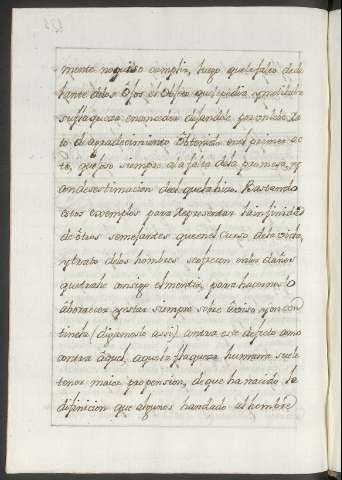 mente no quiso complir, luego que le faltó de de
lante de los ojos el que le pedia, y
su flaqueza
to de agradecimiento en el primer ac
to, que fue siempre a la falta de la promesa, y
en desestimacion del que la hizo. Bastando
estos exemplos para representar la infinidad
de otros semejantes que en el curso de la vida,
y trato de los hombres se ofrecen en los daños
que trahe consigo el mentir, para hacernos lo
aborrecer y estar siempre sobre aviso, y con con
tinela (digamoslo assi) contra este defecto como
contra aquel, a que la flaqueza humana suele
tener maior propension, de que ha nacido la
difinicion que algunos han dado al hombre